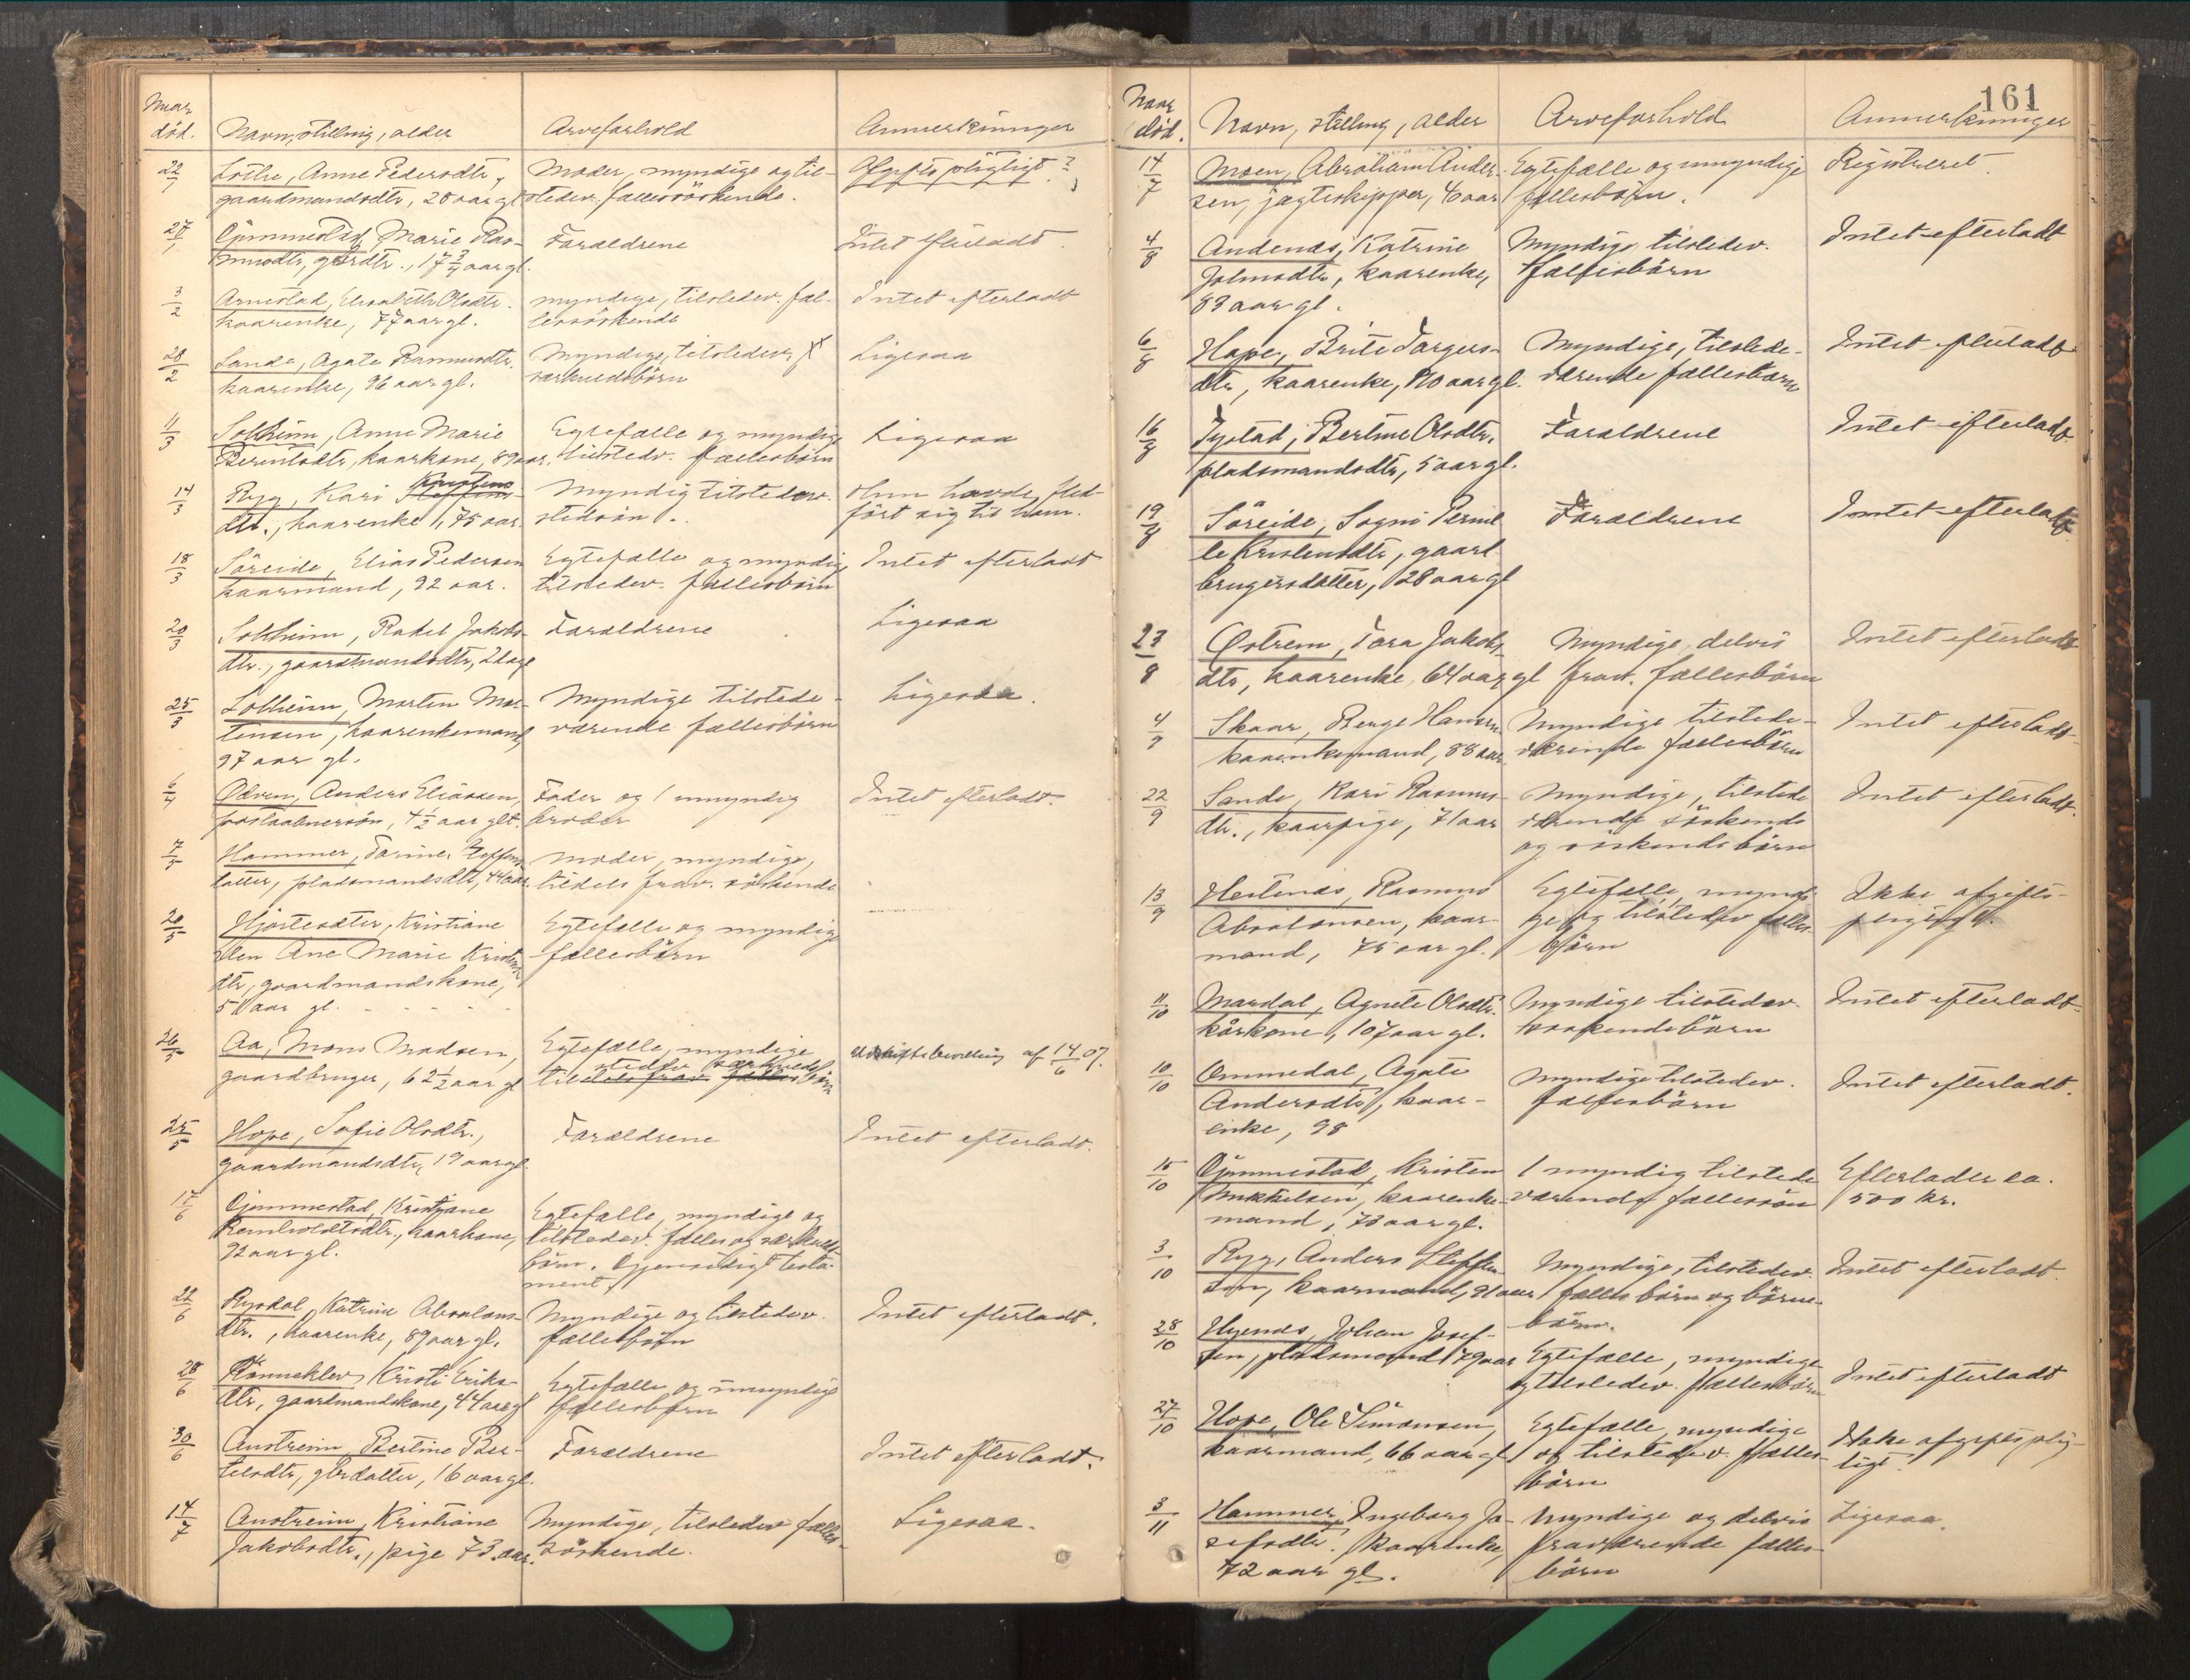 Naar
død.
Navn, stilling, alder
Arveforhold
Anmerkninger
22/1
Lothe, Anne Pedersdtr,
gaardmandsdtr, 20 aar gl
Moder, myndige og til-
stedev. fællessöskende.
Afgiftspligtigt?
28/1
Gjimmestad, Marie Ras-
musdtr, grdtr., 17 3/4 aar gl.
Forældrene
Intet efterladt.
3/2
Arnestad, Elisabeth Olsdtr.
kaarenke, 77 aar gl.
myndige, tilstedev. fæl-
lessöskende
Intet efterladt
28/2
Sande, Agate Rasmusdtr.
kaarenke, 96 aar gl.
Myndige, tilstedev.
særkuldsbörn
Ligesaa
11/3
Solheim, Anne Marie
Berentsdtr, kaarkone, 89 aar.
Egtefælle og myndige
tilstedv. fællesbörn
Ligesaa
14/3
Ryg, Kari Kristens
dtr., kaarenke, 75 aar.
Myndig tilstedev.
stedsön.
Hun havde fled-
fört sig til ham.
18/3
Söreide, Elias Pedersen
kaarmand, 92 aar.
Egtefælle og myndig
tilstedev. fællesbörn
Intet efterladt
20/3
Solheim, Rakel Jakobs-
dtr., gaardmandsdtr, 2 dage
Forældrene
Ligesaa
25/3
Solheim, Morten Mor-
tensen, kaarenkemand,
97 aar gl.
Myndige tilstede-
værende fællesbörn
Ligesaa.
6/4
Odven, Anders Eliassen,
postaabnersön, 4 1/2 aar glt.
Fader og 1 umyndig
broder
Intet efterladt.
7/5
Hammer,
datter, pladsmandsdtr, 44 aar.
Moder, myndige,
tildels frav. söskende
20/5
Hjortesæter, Kristiane
Ane Marie
dtr, gaardmandskone,
51 aar gl.
Egtefælle og myndige
fællesbörn
26/5
Aa, Mons Madsen,
gaardbruger, 62 1/2 aar gl
Egtefælle, myndige
stedev særkulds
tildels frav. fællesbörn
Uskiftebevilling af 14/6 07.
25/5
Hope, Sofie Olsdtr.,
gaardmandsdtr, 19 aar gl.
Forældrene
Intet efterladt.
17/6
Gjimmestad, Kristiane
Reinholdtsdtr., kaarkone,
92 aar gl.
Egtefælle, myndige og
tilstedev. fælles og særkulds
börn. Gjensidigt testa-
ment.
22/6
Rysdal, Katrine Absalons-
dtr., kaarenke, 89 aar gl.
Myndige og tilstedev.
fællesbörn
Intet efterladt.
28/6
Rönneklev, Kristi Eriks-
dtr, gaardmandskone, 44 aar gl
Egtefælle og umyndige
fællesbörn
30/6
Austreim, Bertine Ber-
telsdtr, gbrdatter, 16 aar gl.
Forældrene
Intet efterladt.
14/7
Austreim, Kristiane
Jakobsdtr., pige 73 aar.
Myndige, tilstedev fælles-
söskende.
Ligesaa.
161
Naar
död.
Navn, stilling, alder
Arveforhold
Anmerkninger
14/7
Moen, Abraham Ander-
sen, jagteskipper, 40 aar
Egtefælle og umyndige
fællesbörn.
Registreret.
4/8
Andenæs, Katrine
Johnsdtr, kaarenke,
83 aar gl.
Myndige, tilstedev.
fællesbörn
Intet efterladt
6/8
Hope, Brite Torgers-
dtr, kaarenke, 80 aar gl.
Myndige, tilstede-
værende fællesbörn
Intet efterladt
16/8
Tystad, Bertine Olsdtr.
pladsmandsdtr, 5 aar gl.
Forældrene
Intet efterladt
19/8
Söreide, Sogni Pernil
le Kristensdtr, gaard
brugersdatter, 28 aar gl
Forældrene
Intet efterladt.
23/8
Østrem, Tora Jakobs-
dtr, kaarenke, 64 aar gl
Myndige, delvis
frav. fællesbörn
Intet efterladt
4/9
Skaar, Berge Hansen
kaarenkemand, 88 aar
Myndige tilstede-
værende fællesbörn
Intet efterladt.
22/9
Sande, Kari Rasmus-
dtr., kaarpige, 71 aar
Myndige, tilstede
værende söskende
og söskendebörn
Intet efterladt.
13/9
Hestenæs, Rasmus
Absalonsen, kaar-
mand, 75 aar gl.
Egtefælle, myndi-
ge og tilstedev fælles-
börn
Ikke afgifts-
pligtigt.
11/10
Mardal, Agnete Olsdtr.
kårkone, 107 aar gl.
Myndige tilstedev.
söskendebörn
Intet efterladt.
10/10
Ommedal, Agate
Andersdtr, kaar-
enke, 98
Myndige tilstedev.
fællesbörn
Intet efterladt.
15/10
Gjimmestad, Kristen
Mikkelsen, kaarenke-
mand, 73 aar gl.
1 myndig tilstede
værende fællessön
Efterlader ca.
500 kr.
3/10
Ryg, Anders Steffen-
sen, kaarmand, 91 aar
Myndige, tilstedev.
fælles börn og börne-
börn.
Intet efterladt.
28/10
Hyenæs, Johan Josef-
sen, pladsmand, 79 aar
Egtefælle, myndige
og tilstedev. fællesbörn
Intet efterladt
27/10
Hope, Ole Simonsen,
kaarmand, 66 aar gl
Egtefælle, myndige
og tilstedev. fælles-
börn
Ikke afgiftsplig-
tigt.
3/11
Hammer, Ingeborg Jo-
sefsdtr. kaarenke,
72 aar gl.
Myndige og delvis
fraværende fælles-
börn
Ligesaa.